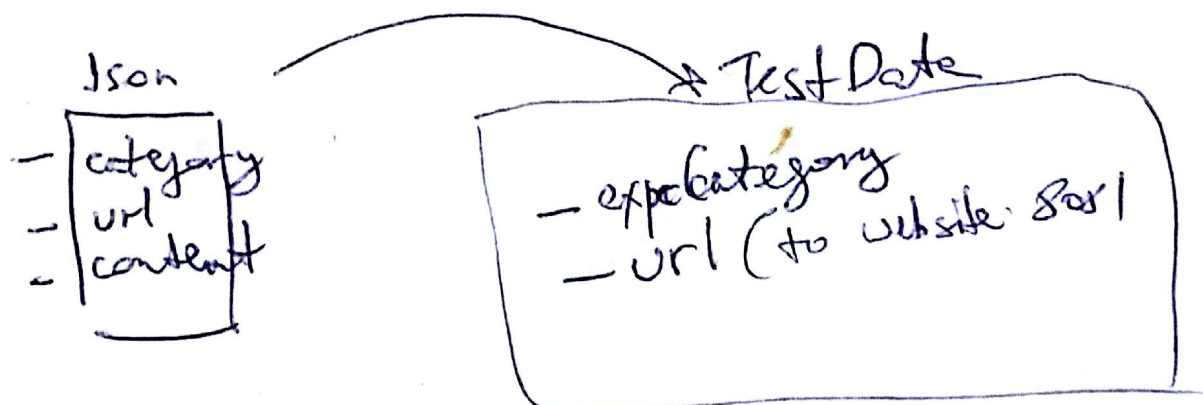 Json
- category
- url
- content
Test Data
- expeCategory
- url (to website